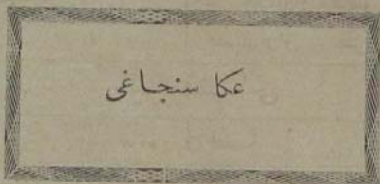 عكا سنجاغى